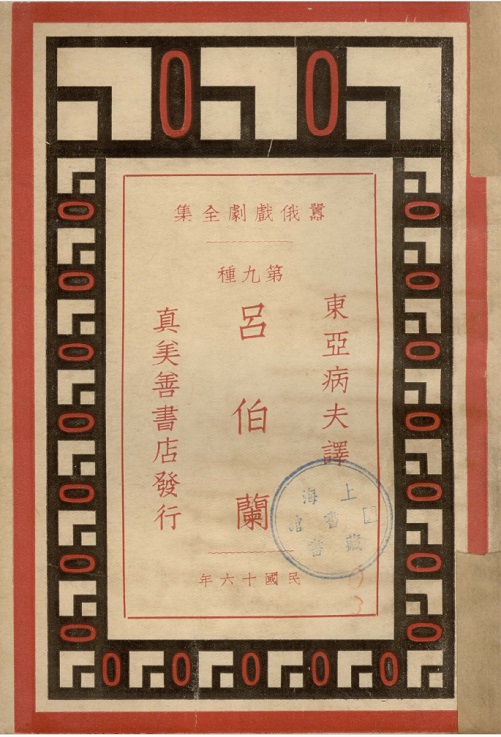 囂俄戲劇全集
第九種
東亞病夫譯
呂伯蘭
真美善書店發行
民國十六年
上海
藏書